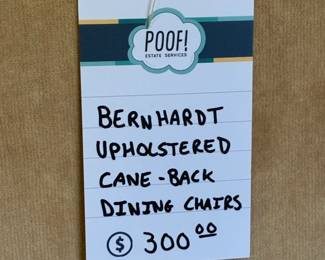 POOF!
ESTATE SERVICES
BERNHARDT
UPHOLSTERED
CANE-BACK
DINING CHAIRS
$ 300 00